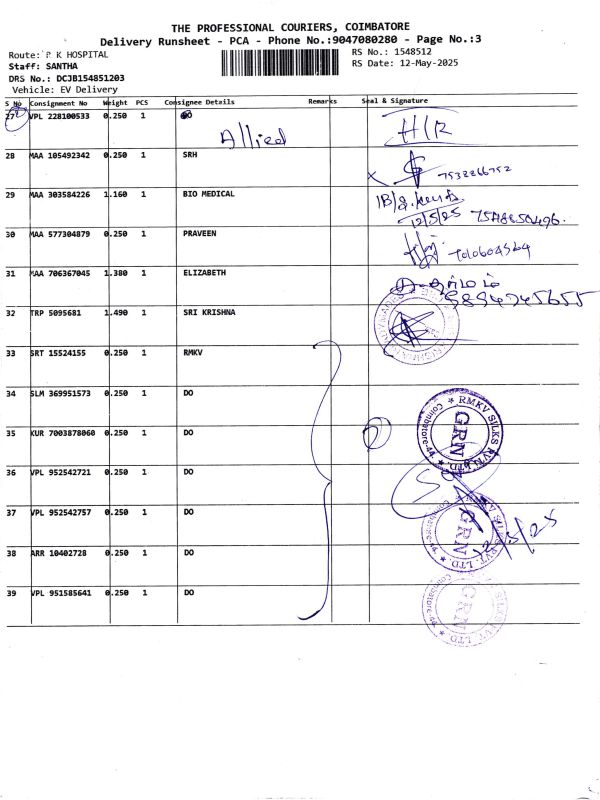 THE PROFESSIONAL COURIERS, COIMBATORE
Delivery Runsheet - PCA - Phone No.:9047080280 - Page No.:3
Route: P K HOSPITAL
RS No.: 1548512
Staff: SANTHA
RS Date: 12-May-2025
DRS No.: DCJB154851203
Vehicle: EV Delivery
S No Consignment No Weight PCS Consignee Details Remarks Seal & Signature
27 VPL 228100533 0.250 1 DO
Allied
28 MAA 105492342 0.250 1 SRH
7532266752
29 MAA 303584226 1.160 1 BIO MEDICAL
12/5/25
30 MAA 577304879 0.250 1 PRAVEEN
31 MAA 706367045 1.380 1 ELIZABETH
9894745655
32 TRP 5095681 1.490 1 SRI KRISHNA
33 SRT 15524155 0.250 1 RMKV
34 SLM 369951573 0.250 1 DO
35 KUR 7003878060 0.250 1 DO
RMKV SILKS PVT. LTD.
GRN
Coimbatore-44
36 VPL 952542721 0.250 1 DO
37 VPL 952542757 0.250 1 DO
GRN
12/5/25
38 ARR 10402728 0.250 1 DO
39 VPL 951585641 0.250 1 DO
GRN